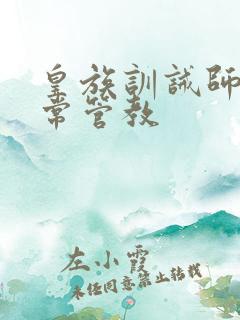 皇族訓誡師
常管教
左小霞
未经同意禁止转载